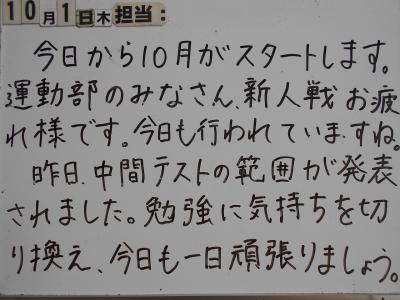 10月1日木担当:
今日から10月がスタートします。
運動部のみなさん、新人戦お疲
れ様です。今日も行われていますね。
昨日、中間テストの範囲が発表
されました。勉強に気持ちを切
り換え、今日も一日頑張りましょう。